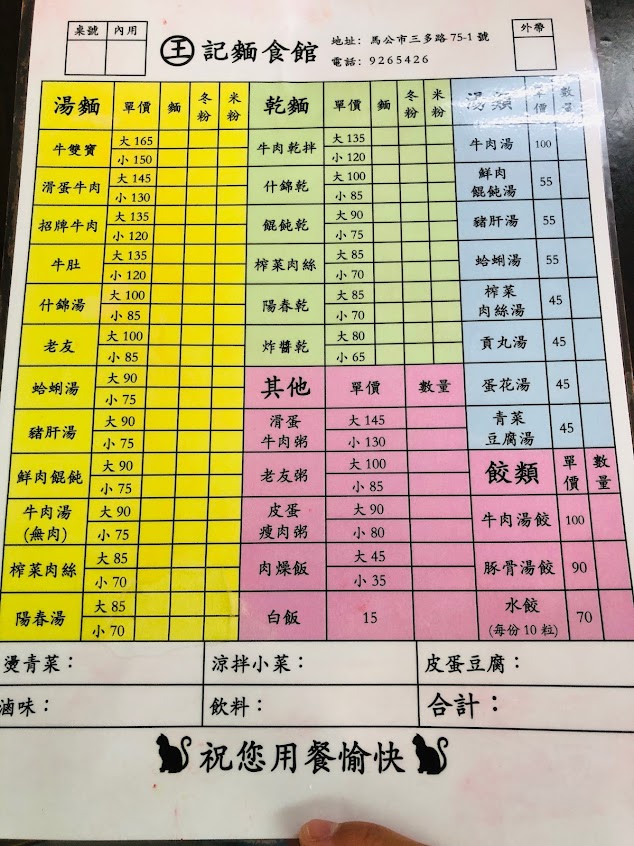 桌號 內用
王記麵食館
地址：馬公市三多路 75-1 號
電話：9265426
外帶
湯麵 單價 麵 冬粉 米粉
牛雙寶 大 165
小 150
滑蛋牛肉 大 145
小 130
招牌牛肉 大 135
小 120
牛肚 大 135
小 120
什錦湯 大 100
小 85
老友 大 100
小 85
蛤蜊湯 大 90
小 75
豬肝湯 大 90
小 75
鮮肉餛飩 大 90
小 75
牛肉湯 大 90
(無肉) 小 75
榨菜肉絲 大 85
小 70
陽春湯 大 85
小 70
乾麵 單價 麵 冬粉 米粉
牛肉乾拌 大 135
小 120
什錦乾 大 100
小 85
餛飩乾 大 90
小 75
榨菜肉絲 大 85
小 70
陽春乾 大 85
小 70
炸醬乾 大 80
小 65
其他 單價 數量
滑蛋 大 145
牛肉粥 小 130
老友粥 大 100
小 85
皮蛋 大 90
瘦肉粥 小 80
肉燥飯 大 45
小 35
白飯 15
湯類 單價 數量
牛肉湯 100
鮮肉
餛飩湯 55
豬肝湯 55
蛤蜊湯 55
榨菜
肉絲湯 45
貢丸湯 45
蛋花湯 45
青菜
豆腐湯 45
餃類 單價 數量
牛肉湯餃 100
豚骨湯餃 90
水餃 70
(每份 10 粒)
燙青菜： 涼拌小菜： 皮蛋豆腐：
滷味： 飲料： 合計：
祝您用餐愉快